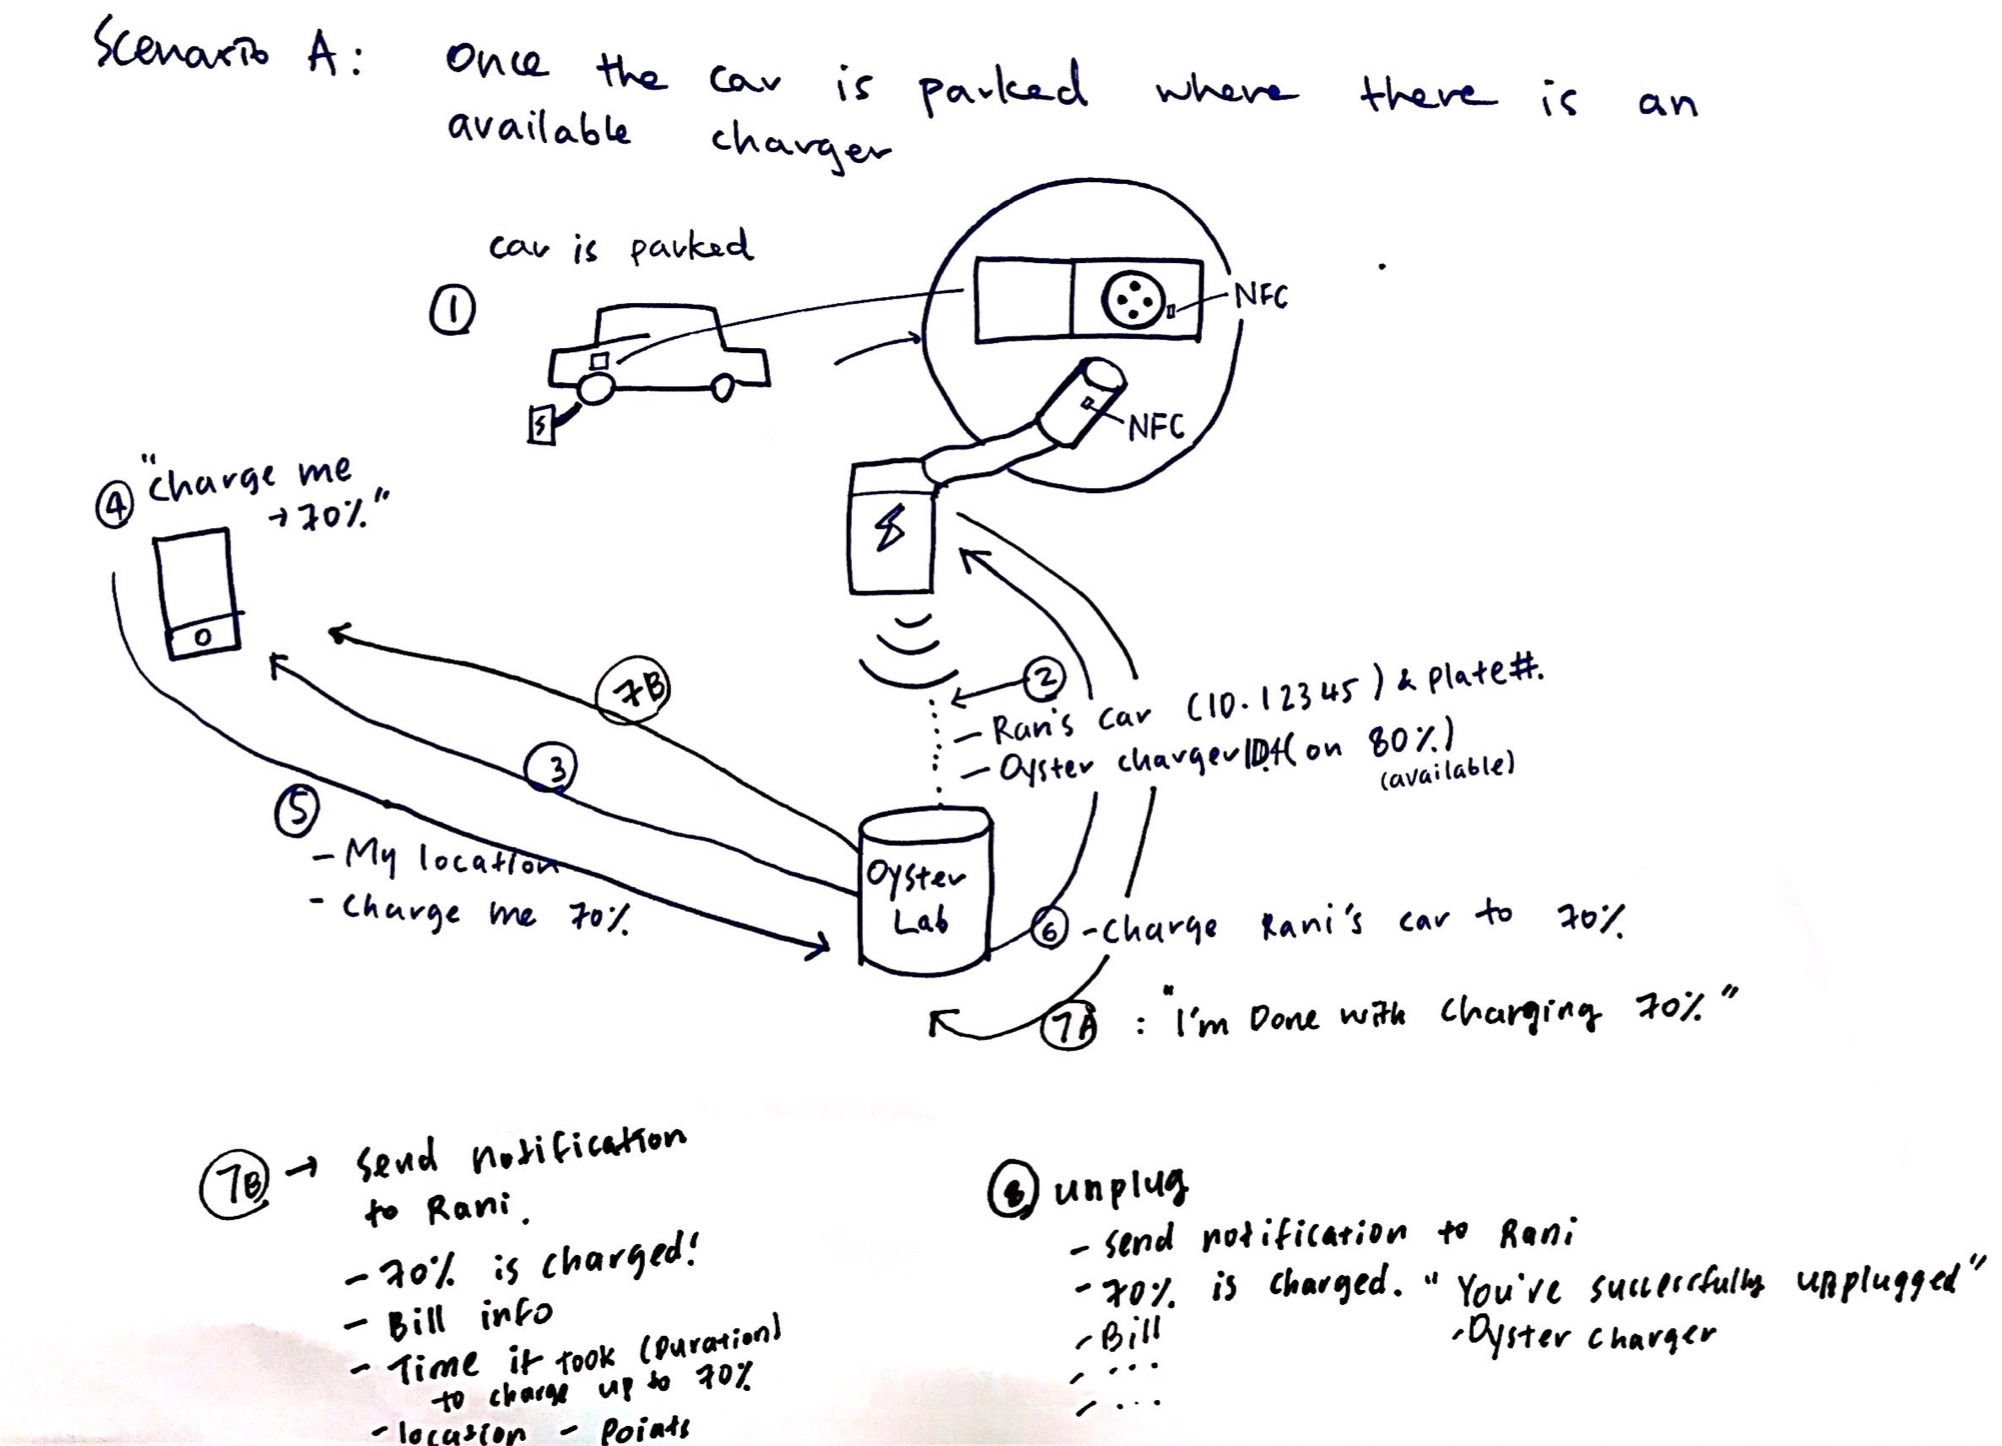 Scenario A: Once the car is parked where there is an
available charger
car is parked
①
NFC
NFC
④ "Charge me
→ 70%"
②
- Rani's Car (ID. 12345) & Plate#.
- Oyster charger ID# (on 80%)
(available)
7B
3
⑤
- My location
- Charge me 70%
Oyster
Lab
⑥ - Charge Rani's car to 70%
7A : "I'm Done with Charging 70%"
7B → Send notification
to Rani.
- 70% is charged!
- Bill info
- Time it took (Duration)
to charge up to 70%
- location - Points
⑧ unplug
- Send notification to Rani
- 70% is charged. "You've successfully unplugged"
- Bill - Oyster Charger
- ...
- ...